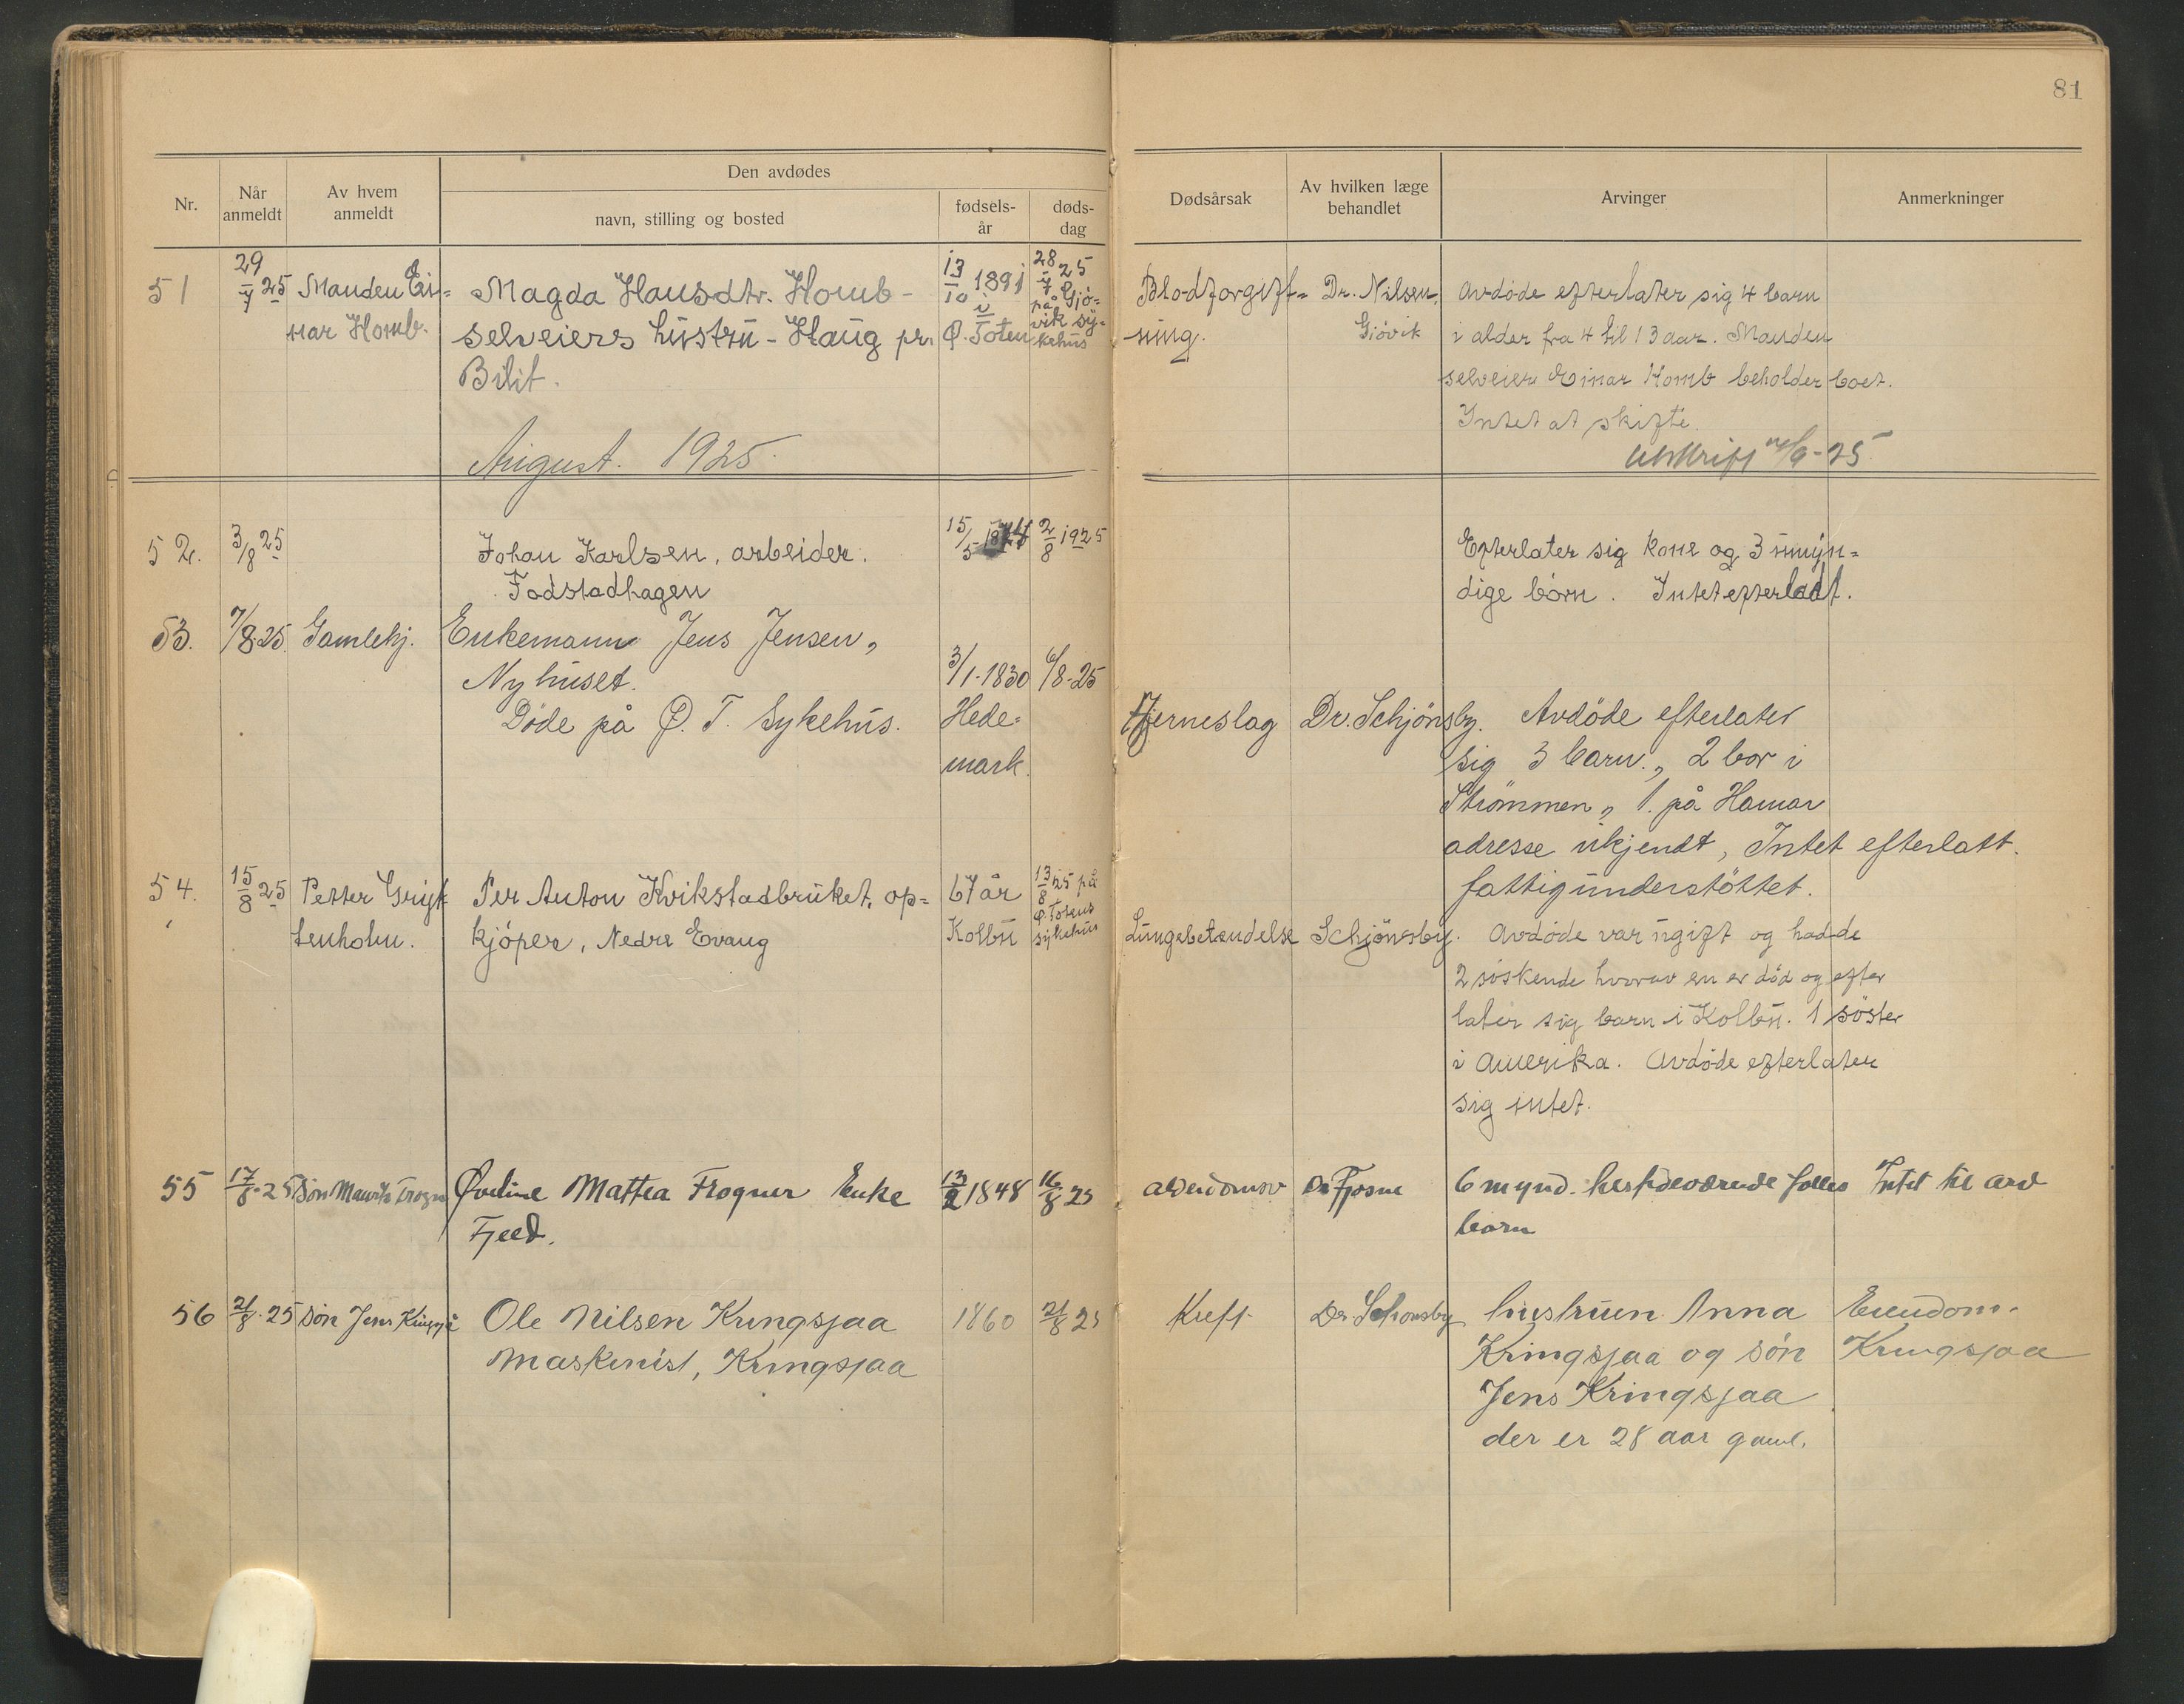 81
Den avdødes
Nr.
Når anmeldt
Av hvem anmeldt
navn, stilling og bosted
fødsels-år
døds-dag
Dødsårsak
Av hvilken læge behandlet
Arvinger
Anmerkninger
51
29/7 25
Manden Ei=
nar Homb.
Magda Hansdtr. Homb -
selveiers hustru - Haug pr.
Bilit.
13/10 1891
i
Ø. Toten
28/7 25
på Gjö=
vik sy=
kehus
Blodforgift=
ning.
Dr. Nilsen,
Gjövik
Avdöde efterlater sig 4 barn
i alder fra 4 til 13 aar. Manden
selveier Einar Homb beholder boet.
Intet at skifte.
Utskrift /9-25
August. 1925.
52.
3/8 25
Johan Karlsen, arbeider.
Fodstadhagen
15/5
2/8 1925
Efterlater sig kone og 3 umyn=
dige börn. Intet efterladt.
53.
7/8-25.
Gamlehj.
Enkemann Jens Jensen,
Nyhuset.
Döde på Ø. T. Sykehus.
3/1-1830
Hede=
mark.
6/8-25
Hjerneslag
Dr. Schjönsby.
Avdöde efterlater
sig 3 barn., 2 bor i
Strömmen, 1. på Hamar
adresse ukjendt, Intet efterlatt.
fattigunderstöttet.
54.
15/8 25
Petter Grift
tenholm.
Per Anton Kvikstadbruket, op=
kjöper, Nedre Evang
67 år
Kolbu
13/8 25 på
Ø. Totens
sykehus
Lungebetændelse
Schjönsby.
Avdöde var ugift og hadde
2 söskende hvorav en er död og efter
later sig barn i Kolbu. 1 söster
i Amerika. Avdöde efterlater
sig intet.
55
17/8-25
Sön Mauritz Frogn
Øveline Mattea Frogner Enke
Fjeld.
13/2 1848
16/8 25
alderdomsv
Dr Fjosne
6 mynd. herstedværende fælles
barn
Intet til arv
56
21/8-25
Sön Jens Kringsjå
Ole Nilsen Kringsjaa
Maskinist, Kringsjaa
1860
21/8 25
Kreft
Dr Schönsby
hustruen Anna
Kringsjaa og sön
Jens Kringsjaa
der er 28 aar gaml.
Eiendom.
Kringsjaa